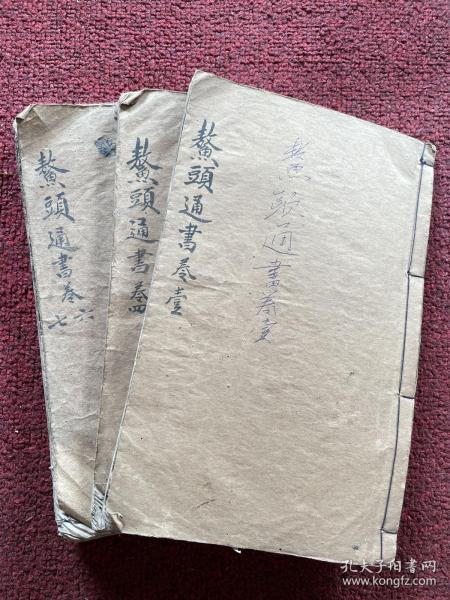 鰲頭通書卷壹
鰲頭通書卷壹
鰲頭通書卷四
鰲頭通書卷六
七
孔夫子旧书网
www.kongfz.com